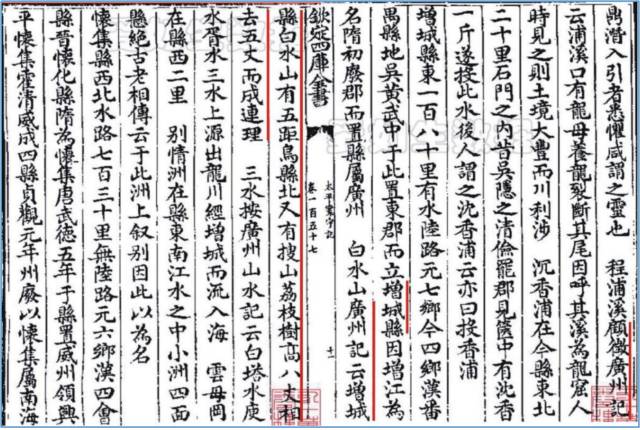 鼎潛入引者患懼咸謂之靈也　程浦溪顧微廣州記
云浦溪口有龍母養龍裂斷其尾因呼其溪為龍窟人
時見之則土境大豐而川利涉　沉香浦在今縣東北
二十里石門之内昔吳隱之清儉罷郡見篋中有沈香
一斤遂投此水後人謂之沈香浦云亦曰投香浦
增城縣東一百八十里有水陸路元七鄉今四鄉漢番
禺縣地吳黃武中于此置東郡而立增城縣因增江為
名隋初廢郡而置縣屬廣州　白水山廣州記云增城
欽定四庫全書
太平寰宇記
卷一百五十七
十一
縣白水山有五距鳥縣北又有搜山荔枝樹高八丈相
去五丈而成連理　三水按廣州山水記云白塔水庾
水胥水三水上源出龍川經增城而流入海　雲母岡
在縣西二里　別情洲在縣東南江水之中小洲四面
懸絶古老相傳云于此洲上叙别因此以為名
懷集縣西北水路七百三十里無陸路元六鄉漢四會
縣晉懷化縣隋為懷集唐武德五年于縣置威州領興
平懷集霍清威成四縣貞觀元年州廢以懷集屬南海